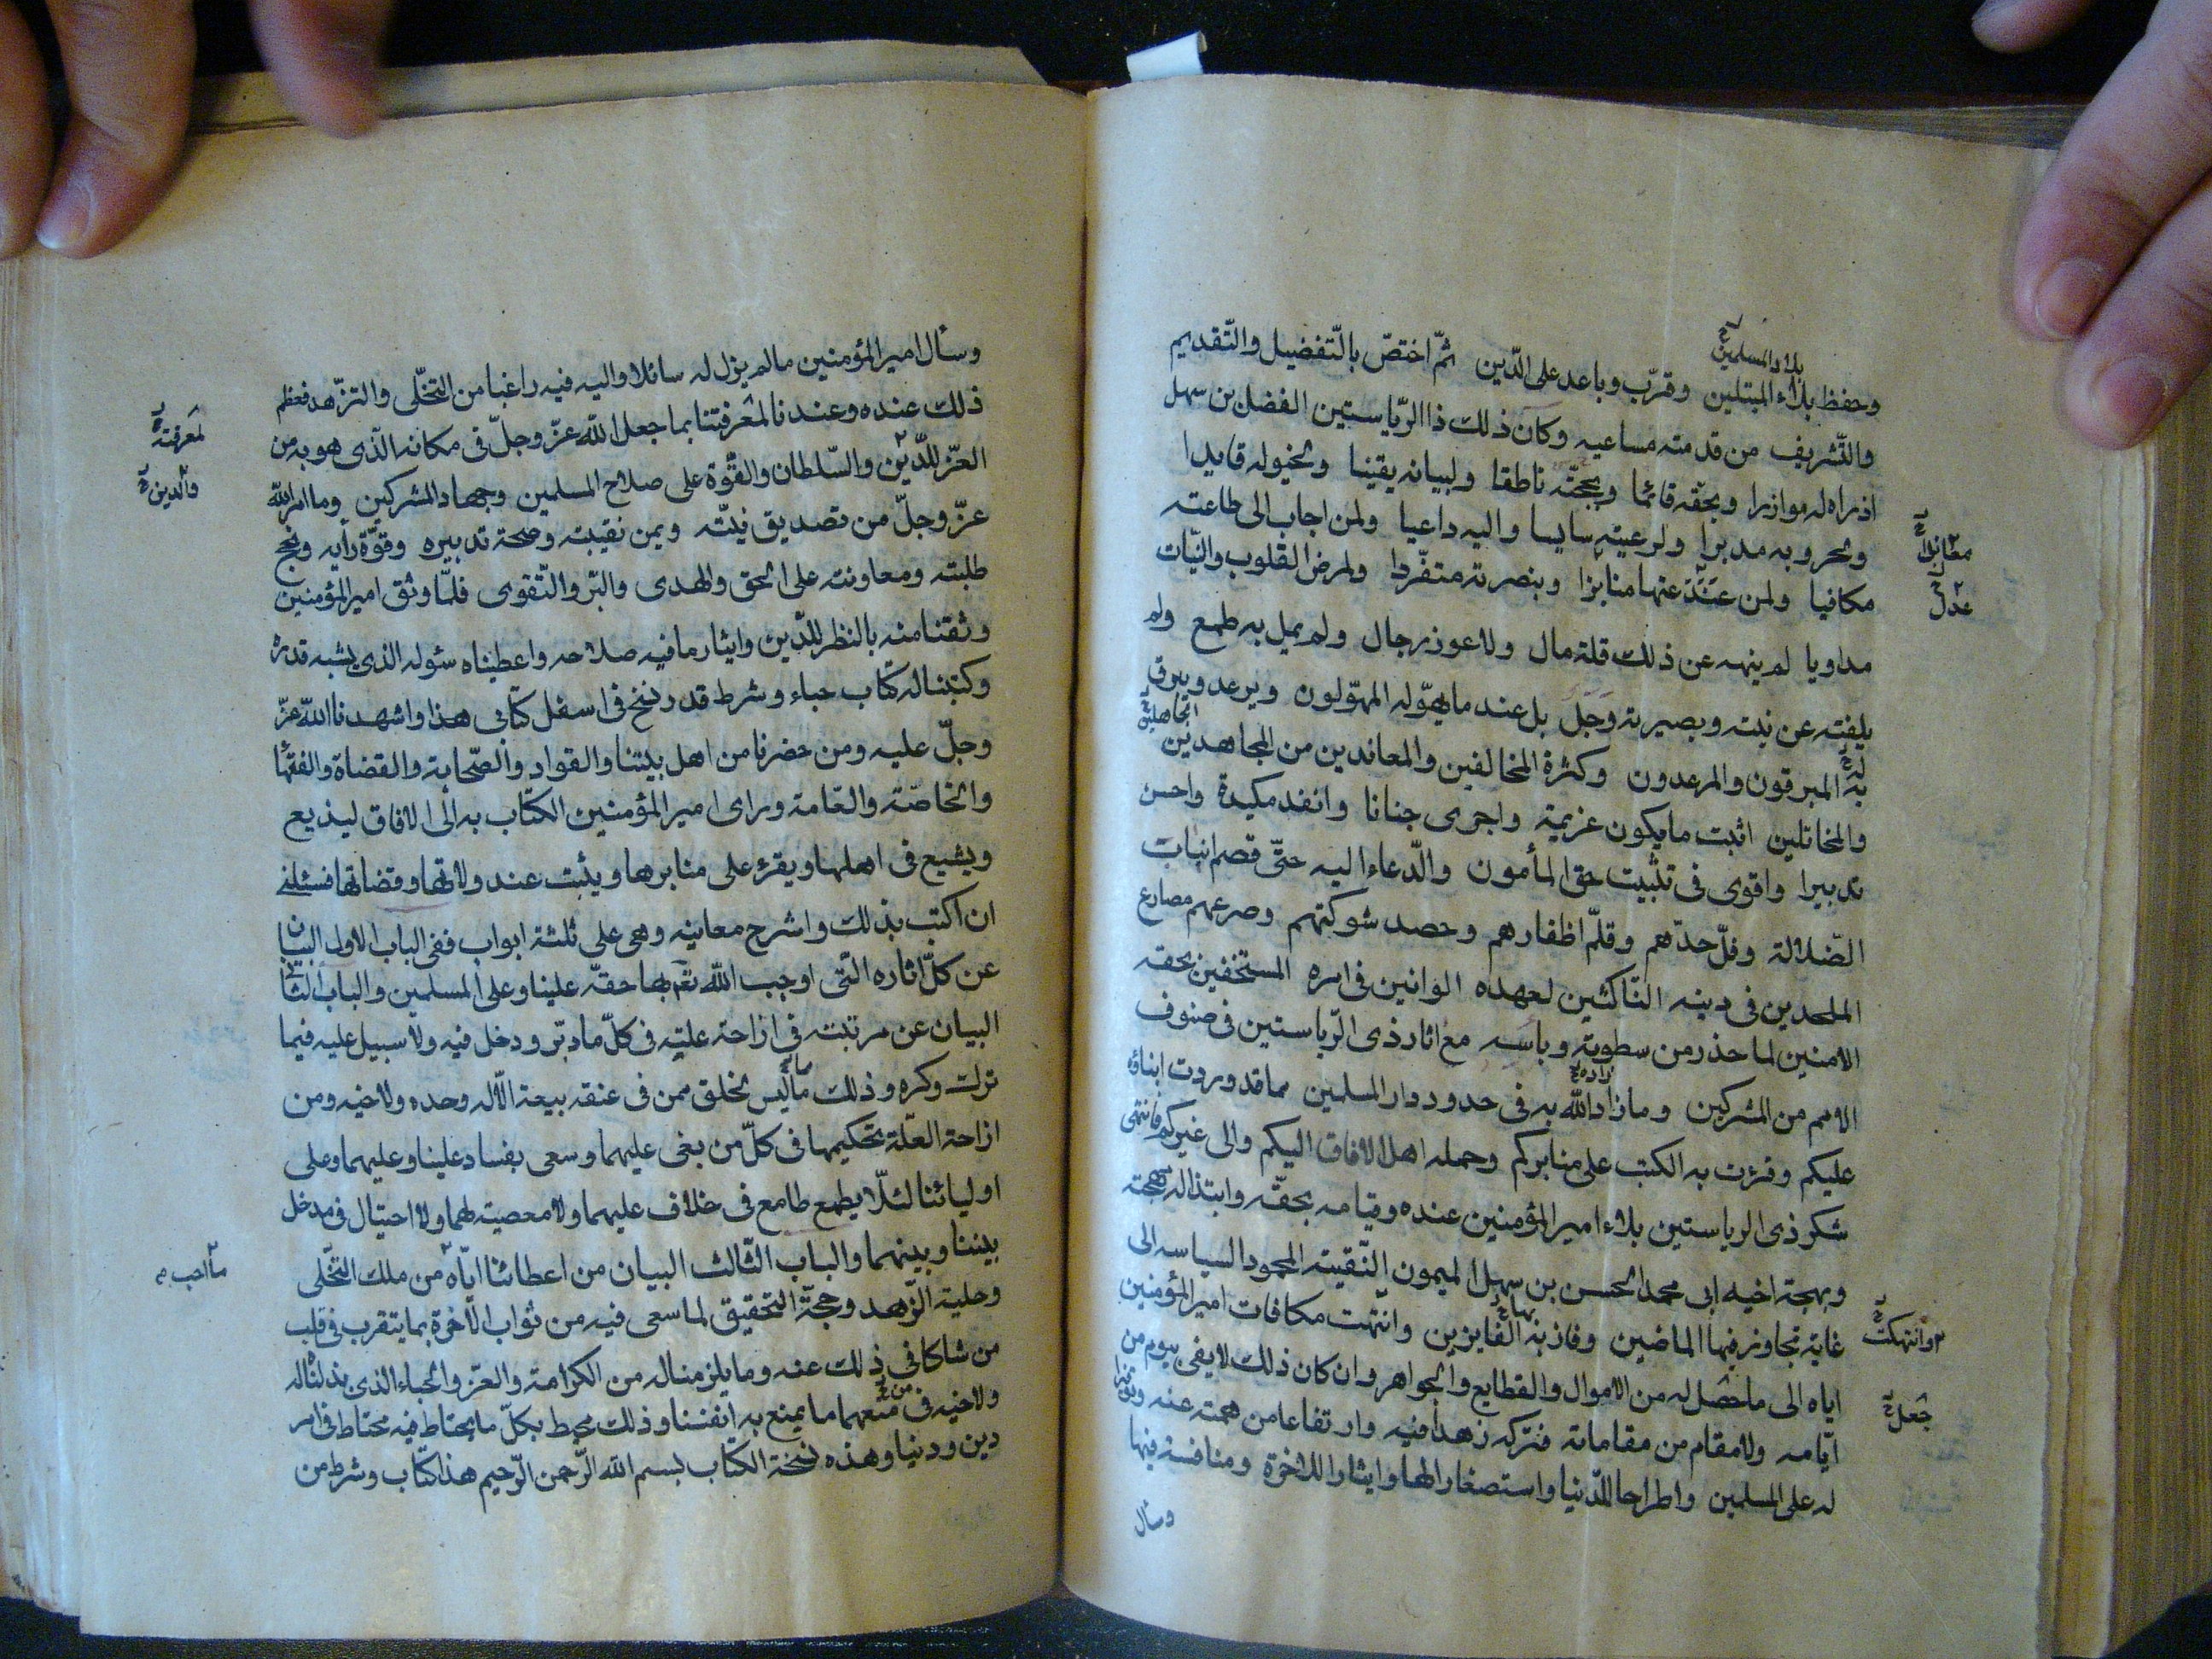 وحفظ بلاء المبتلين وقرّب وباعد على الدّين ثمّ اختصّ بالتّفضيل والتّقديم
والتّشريف من قدمته مساعيه وكان ذلك ذا الرّياستين الفضل بن سهل
اذ راه له موازرا وبحقه قائما وبحجّته ناطقا ولبيانه يقينا ولخيوله قايدا
ولحروبه مدبرا ولرعيته سايسا واليه داعيا ولمن اجاب الى طاعته
مكافيا ولمن عَنَدَ عنها منابزا وبنصرته متفّردا ولمرض القلوب والنيّات
مداويا لم ينهه عن ذلك قلة مال ولا عوز رجال ولم يمل به طمع ولم
يلفته عن نيته وبصيرته وَجَل بل عند ما يهوّله المهوّلون ويرعد ويبرق
به المبرقون والمرعدون وكثرة المخالفين والمعاندين من المجاهدين
والمخاتلين اثبت ما يكون عزيمة واجرى جنانا وانفد مكيدة واحسن
تدبيرا واقوى فى تثبيت حق المأمون والدّعاء اليه حتّى قصم انياب
الضّلالة وفلّ حدّهم وقلّم اظفارهم وحصد شوكتهم وصرعهم مصارع
الملحدين فى دينه النّاكثين لعهده الوانين فى امره المستخفين بحقه
الامنين لما حذر من سطوته وباسه مع اثار ذى الرّياستين فى صنوف
الامم من المشركين وما زاد الله به فى حدود دار المسلمين مما قد وردت ابناؤه
عليكم وقرئت به الكتب على منابركم وحمله اهل الافاق اليكم والى غيركم فانتهى
شكر ذى الرياستين بلاء امير المؤمنين عنده وقيامه بحقّه وابتذاله مهجته
وبهجة اخيه ابى محمد الحسن بن سهل الميمون النّقيبة المحمود السياسه الى
غاية تجاوز فيها الماضين وفاز به الفايزين وانتهت مكافات امير المؤمنين
اياه الى ما حصل له من الاموال والقطايع والجواهر وان كان ذلك لا يفى بيوم من
ايّامه ولا مقام من مقاماته فتركه زهدا فيه وارتفاعا من همته عنه وتوفيرا
له على المسلمين واطراحا للدّنيا واستصغارا لها وايثارا للاخرة ومنافسة فيها
وسأل
بلاد المسلمين
عدل
الجاهلية
زاده
بها
وانتهكت
جعل
وسأل امير المؤمنين ما لم يزل له سائلا واليه فيه راغبا من التخّلى والتزّهد فعظم
ذلك عنده وعندنا لمعرفتنا بما جعل الله عزّ وجلّ فى مكانه الّذى هو به من
العزّ للدّين والسّلطان والقوّة على صلاح المسلمين وجهاد المشركين وما ارى الله
عزّ وجلّ من تصديق نيتّه ويمن نقيبته وصحة تدبيره وقوّة رأيه ونجح
طلبته ومعاونته على الحق والهدى والبّر والتّقوى فلمّا وثق امير المؤمنين
وثقنا منه بالنظر للدّين وايثار ما فيه صلاحه واعطيناه سئوله الذى يشبه قدره
وكتبنا له كتاب حباء وشرط قد نسخ فى اسفل كتابى هذا واشهدنا الله عزّ
وجلّ عليه ومن حضرنا من اهل بيتنا والقواد والصّحابة والقضاة والفقها
والخاصّة والعامة وراى امير المؤمنين الكتاب به الى الافاق ليذيع
ويشيع فى اهلها ويقرء على منابرها ويثبت عند ولاتها وقضاتها فسئلنى
ان اكتب بذلك واشرح معانيه وهى على ثلثة ابواب ففى الباب الاول البيان
عن كلّ اثاره الّتى اوجب الله تع بها حقّه علينا وعلى المسلمين والباب الثانى
البيان عن مرتبته فى ازاحة علتّه فى كلّ ما دبّر ودخل فيه ولا سبيل عليه فيما
ترك وكره وذلك ما ليس لخلق ممن فى عنقه بيعة الّا له وحده ولاخيه ومن
ازاحة العلّة تحكيمها فى كلّ من بغى عليهما وسعى بفساد علينا وعليهما وعلى
اوليائنا لئلّا يطمع طامع فى خلاف عليهما ولا معصية لهما ولا احتيال فى مدخل
بيننا وبينهما والباب الثّالث البيان من اعطائنا ايّاه من ملك التخّلى
وحلية الزّهد وحجّة التحقيق لما سعى فيه من ثواب الاخرة بما يتقرب فى قلب
من شاكا فى ذلك عنه وما يلزمنا له من الكرامة والعزّ والحباء الذى بذلناه له
ولاخيه فى منعهما ما يمنع به انفسنا وذلك محيط بكلّ ما يحتاط فيه محتاط فى امر
دين ودنيا وهذه نسخة الكتاب بسم الله الرّحمن الرّحيم هذا كتاب وشرط من
لمعرفته
والدين
ما احب